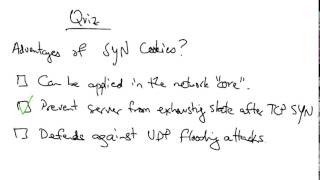 Quiz
Advantages of SYN Cookies?
Can be applied in the network "core".
Prevent server from exhausting state after TCP SYN
Defends against UDP flooding attacks